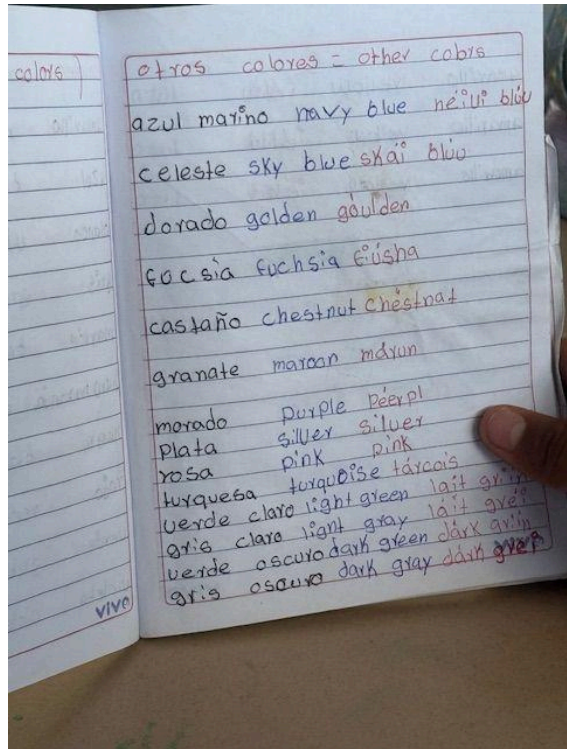 colors)
vivo
otros colores = other colors
azul marino navy blue néiui blúu
celeste sky blue skái blúu
dorado golden góulden
focsia fuchsia fiúsha
castaño chestnut chéstnat
granate maroon márun
morado purple péerpl
plata silver silver
rosa pink pink
turquesa turquoise tárcois
verde claro light green lait griin
gris claro light gray lait gréi
verde oscuro dark green dárk griin
gris oscuro dark gray dárk